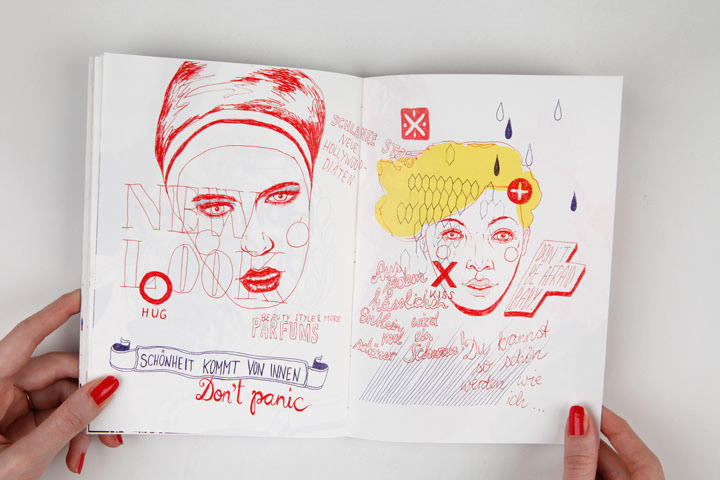 NEW
LOOK
HUG
BEAUTY STYLE & MORE
PARFUMS
SCHÖNHEIT KOMMT VON INNEN
Don't panic
SCHLANKE STARS
NEUE
HOLLYWOOD-
DIÄTEN
KISS
Aus
jedem
hässlichen
Entlein wird
mal ein
schöner Schwan!
DON'T
BE AFRAID
Du kannst
so schön
werden wie
ich...